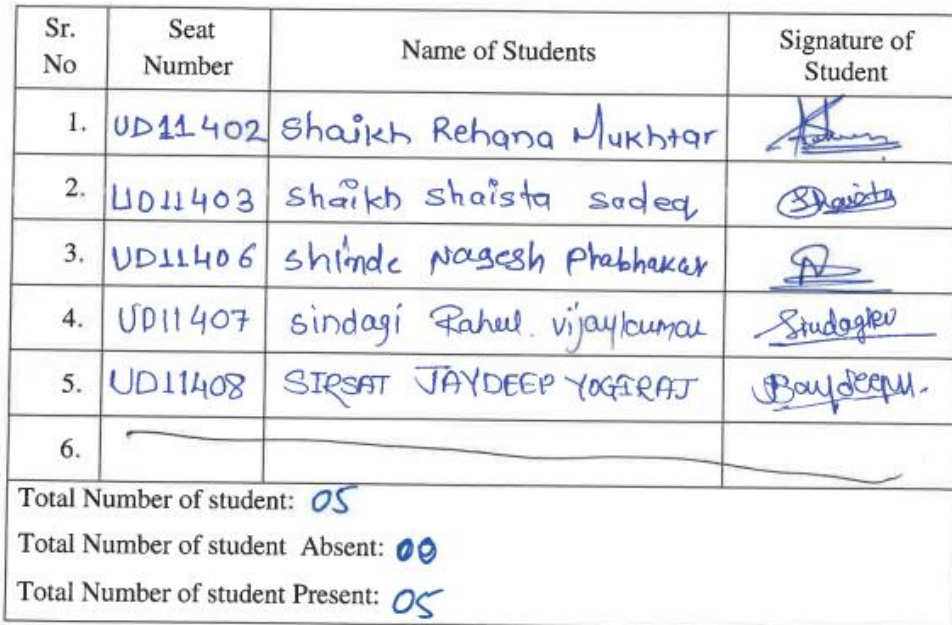 Sr. No Seat Number Name of Students Signature of Student
1. UD11402 Shaikh Rehana Mukhtar
2. UD11403 Shaikh Shaista Sadeq Shaista
3. UD11406 Shinde Nagesh Prabhakar
4. UD11407 Sindagi Rahul. Vijaykumar
5. UD11408 SIRSAT JAYDEEP YOGIRAJ
6.
Total Number of student: 05
Total Number of student Absent: 00
Total Number of student Present: 05